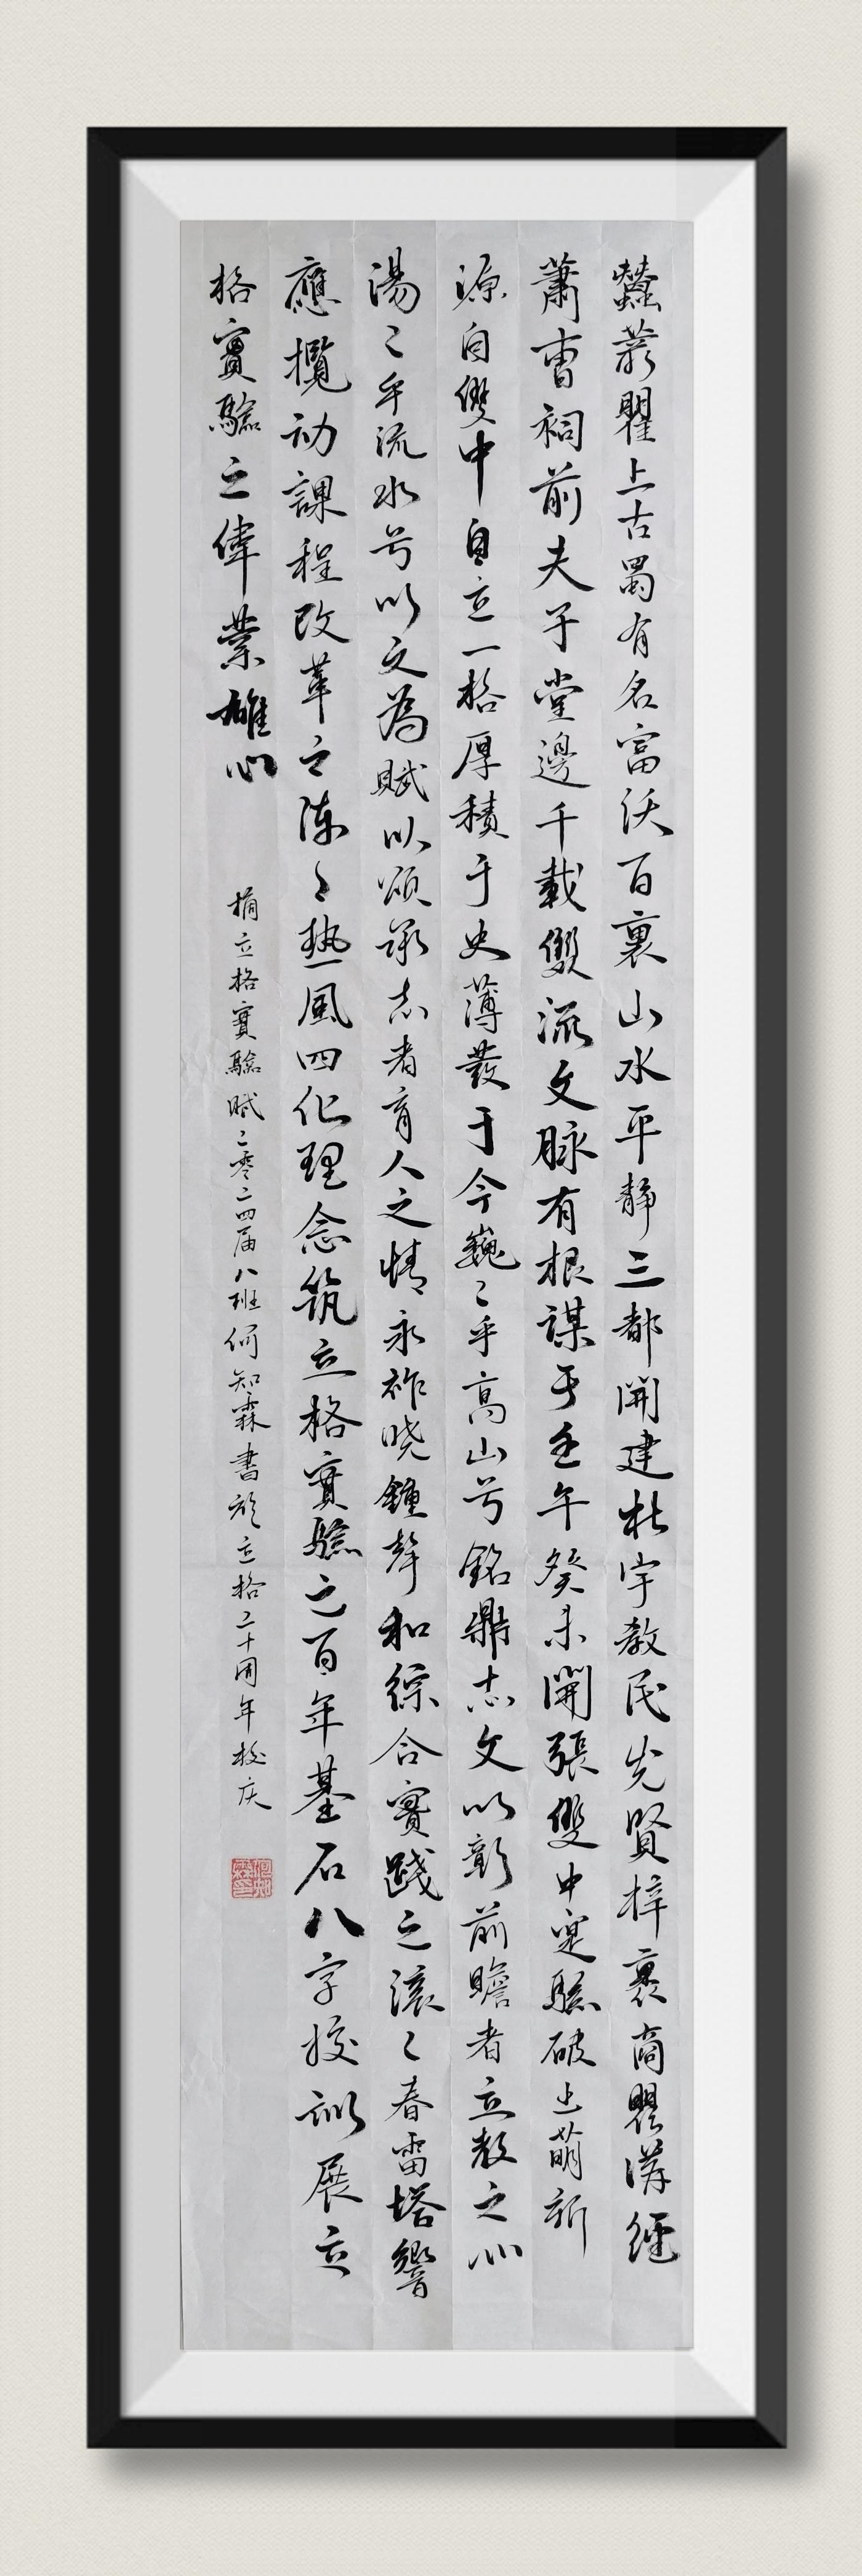 蠶叢瞿上古蜀有名富沃百裏山水平靜三都開建杜宇教民先賢梓裏商瞿講經
蕭曹祠前夫子堂邊千載雙流文脉有根謀于壬午癸未開張雙中實驗破土萌新
源自雙中自立一格厚積于史薄發于今巍〻乎高山兮銘鼎志文以彰前瞻者立教之心
湯〻乎流水兮以文為賦以頌承志者育人之情永祚曉鐘聲和綜合實踐之滾〻春雷塔響
應攬動課程改革之陣〻熱風四化理念筑立格實驗之百年基石八字校訓展立
格實驗之偉業雄心
摘立格實驗賦二零二四届八班何知霖書於立格二十周年校庆